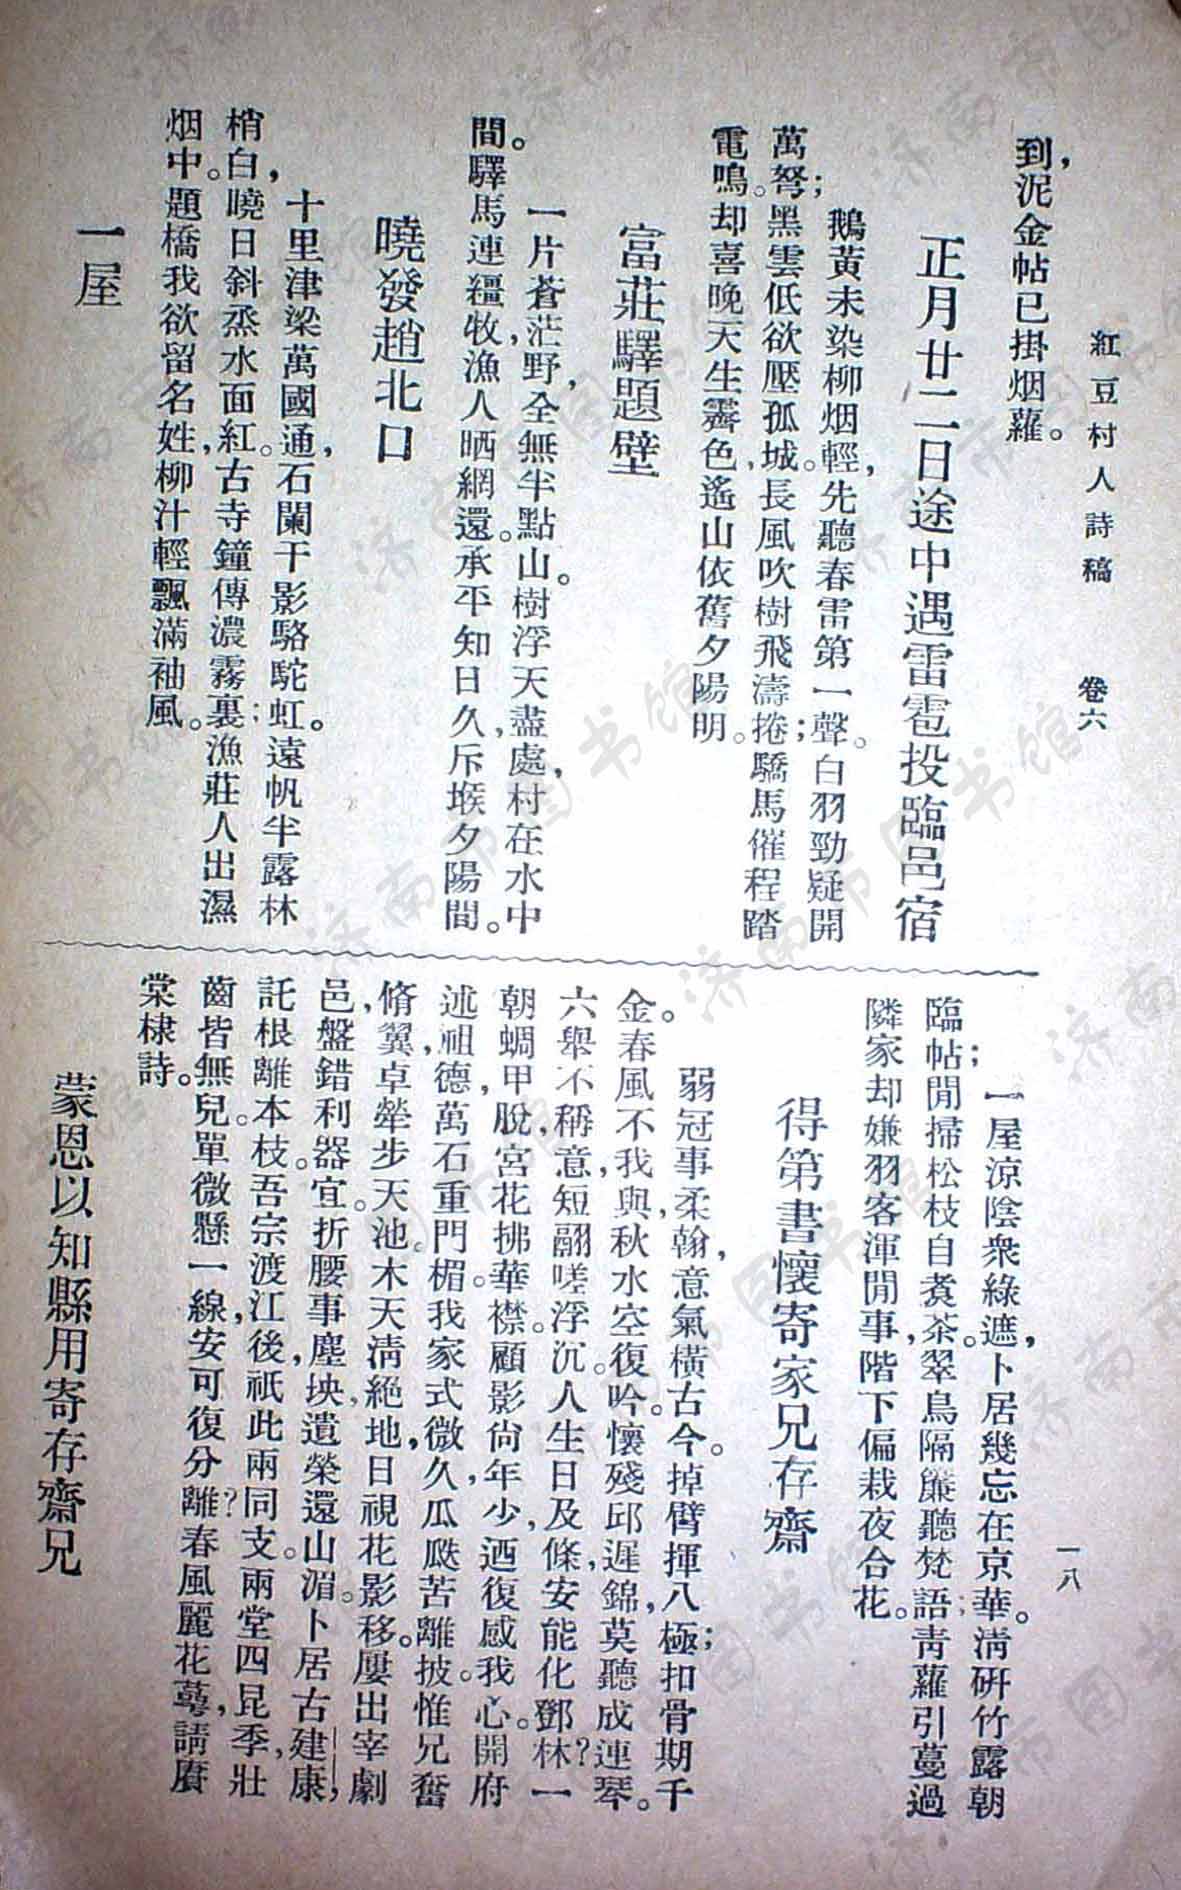 紅豆村人詩稿　卷六　一八
到，泥金帖已掛烟蘿。
正月廿二日途中遇雷雹投臨邑宿
鵝黃未染柳烟輕，先聽春雷第一聲。白羽勁疑開
萬弩；黑雲低欲壓孤城。長風吹樹飛濤捲；驕馬催程踏
電鳴。却喜晚天生霽色，遙山依舊夕陽明。
富莊驛題壁
一片蒼茫野，全無半點山。樹浮天盡處，村在水中
間。驛馬連繮牧，漁人晒網還。承平知日久，斥堠夕陽間。
曉發趙北口
十里津梁萬國通，石闌干影駱駝虹。遠帆半露林
梢白，曉日斜烝水面紅。古寺鐘傳濃霧裏；漁莊人出濕
烟中。題橋我欲留名姓，柳汁輕飄滿袖風。
一屋
一屋涼陰衆綠遮，卜居幾忘在京華。淸硏竹露朝
臨帖；閒掃松枝自煑茶。翠鳥隔簾聽梵語；靑蘿引蔓過
隣家。却嫌羽客渾閒事，階下偏栽夜合花。
得第書懷寄家兄存齋
弱冠事柔翰，意氣橫古今。掉臂揮八極；扣骨期千
金。春風不我與，秋水空復吟。懷殘邱遲錦，莫聽成連琴。
六舉不稱意，短翮嗟浮沉。人生日及條，安能化鄧林？一
朝蜩甲脫，宮花拂華襟。顧影尙年少，迺復感我心。開府
述祖德，萬石重門楣。我家式微久，瓜瓞苦離披。惟兄奮
脩翼，卓犖步天池。木天淸絕地，日視花影移。屢出宰劇
邑，盤錯利器宜。折腰事塵坱，遺榮還山湄。卜居古建康，
託根離本枝。吾宗渡江後，祇此兩同支。兩堂四昆季，壯
齒皆無兒。單微懸一線，安可復分離？春風麗花萼，請賡
棠棣詩。
蒙恩以知縣用寄存齋兄